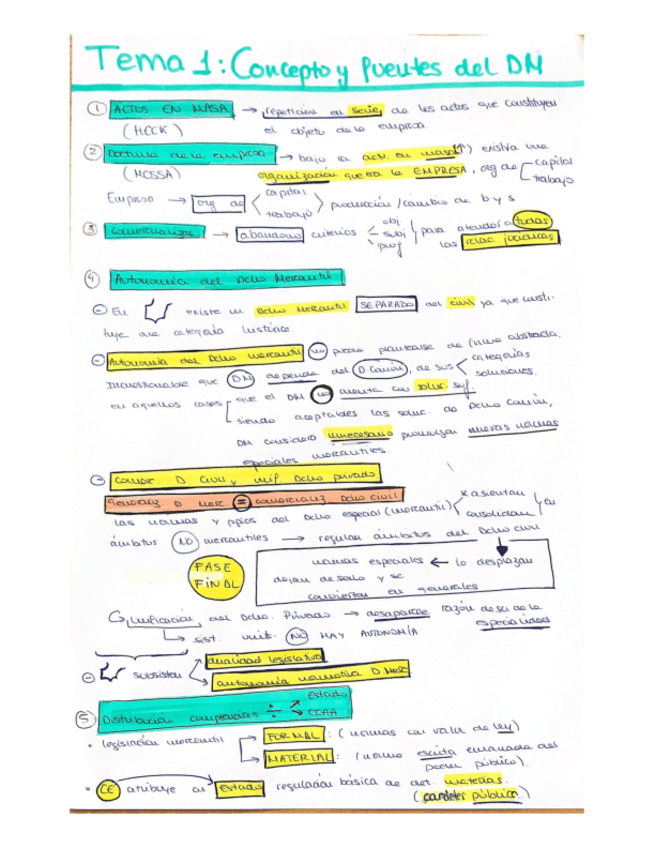 Tema 1: Concepto y Fuentes del DM
① ACTOS EN MASA → repetición en serie, de los actos que constituyen
(HECK) el objeto de la empresa.
② Doctrina de la empresa → bajo la act. en masa (↑) existía una
(MOSSA) organización que era la EMPRESA, org de capital
trabajo
Empresa → org de capital
trabajo producción / cambio de b y s
③ Comercializar → abandono criterios obj
subj
prof para atender a todas
las relac. jurídicas
④ Autonomía del Dcho Mercantil
En existe un Dcho Mercantil SEPARADO del civil ya que consti-
tuye una categoría histórica.
Autonomía del Dcho mercantil no puede plantearse de forma abstracta.
Incuestionable que DM depende del D.Común, de sus categorías
soluciones.
en aquellos casos que el DM no cuenta con soluc. suf.
siendo aceptables las soluc. de Dcho Común,
DM considera innecesario promulgar nuevas normas
especiales mercantiles.
comerc D Civil y unif Dcho privado
Generaliz D Merc = comercializ Dcho civil
las normas y ppios del Dcho especial (mercantil) se asientan
consolidan en
ámbitos NO mercantiles → regulan ámbitos del Dcho civil
FASE
FINAL
normas especiales ← lo desplazan
dejan de serlo y se
convierten en generales
Unificación del Dcho. Privado → desaparece razón de ser de la
especialidad
→ sist. unit. NO HAY AUTONOMÍA
subsisten dualidad legislativa
autonomía normativa D Merc
⑤ Distribución competencias ÷ Estado
CCAA
• legislación mercantil FORMAL: (normas con valor de ley)
MATERIAL: (norma escrita emanada del
poder público).
• CE atribuye al Estado regulación básica de det. materias.
(carácter público)